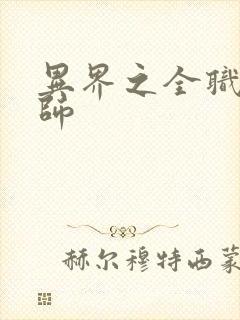 異界之全職
師
赫尔穆特西蒙